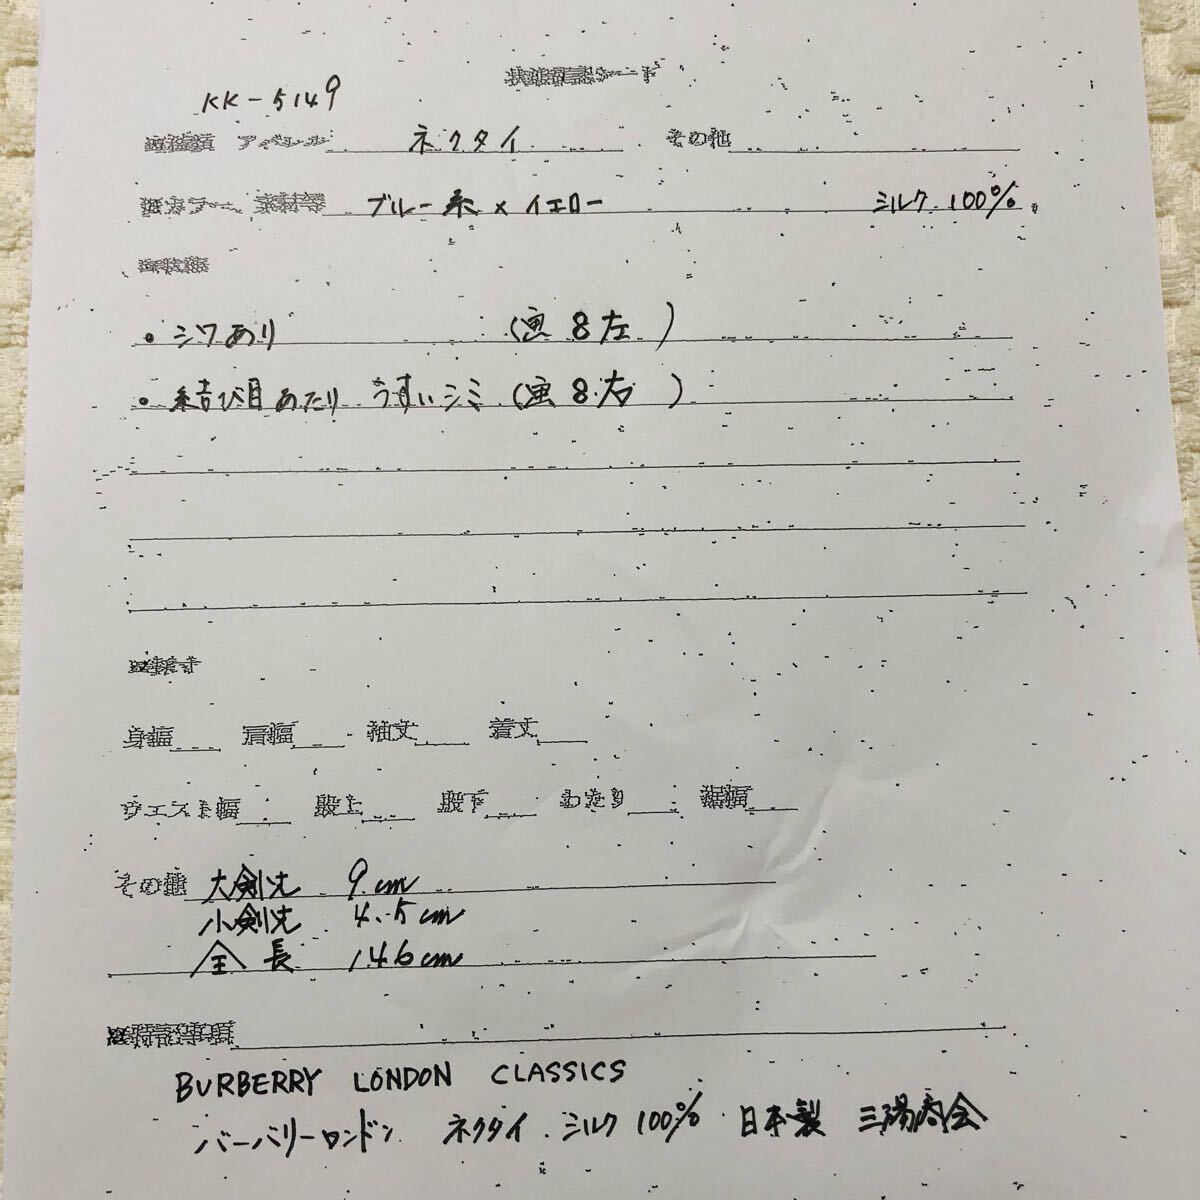 状態確認シート
KK-5149
アパレル ネクタイ その他
ブルー系×イエロー シルク 100%
・シワあり (画 8 左 )
・結び目あたり うすいシミ (画 8 右 )
身幅 肩幅 袖丈 着丈
ウエスト幅 股上 股下 わたり 裾幅
その他 大剣先 9cm
小剣先 4.5cm
全長 146cm
特記事項
BURBERRY LONDON CLASSICS
バーバリーロンドン ネクタイ シルク100% 日本製 三陽商会